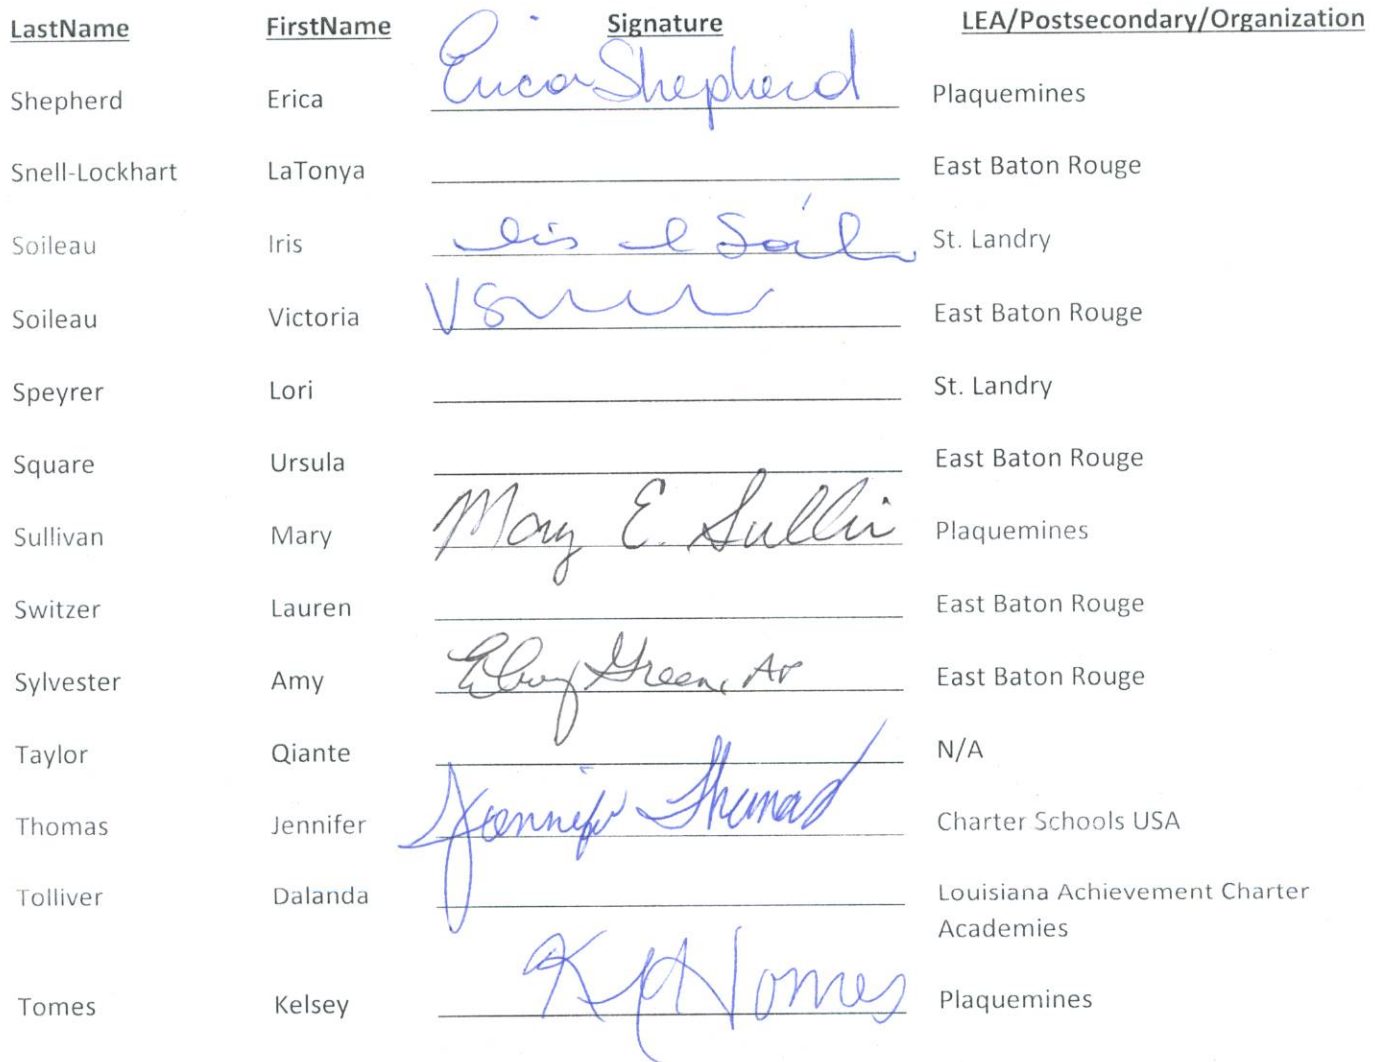 LastName FirstName Signature LEA/Postsecondary/Organization
Shepherd Erica Erica Shepherd Plaquemines
Snell-Lockhart LaTonya East Baton Rouge
Soileau Iris St. Landry
Soileau Victoria East Baton Rouge
Speyrer Lori St. Landry
Square Ursula East Baton Rouge
Sullivan Mary Mary E. Plaquemines
Switzer Lauren East Baton Rouge
Sylvester Amy Green, East Baton Rouge
Taylor Qiante N/A
Thomas Jennifer Jennifer Thomas Charter Schools USA
Tolliver Dalanda Louisiana Achievement Charter
Academies
Tomes Kelsey Tomes Plaquemines